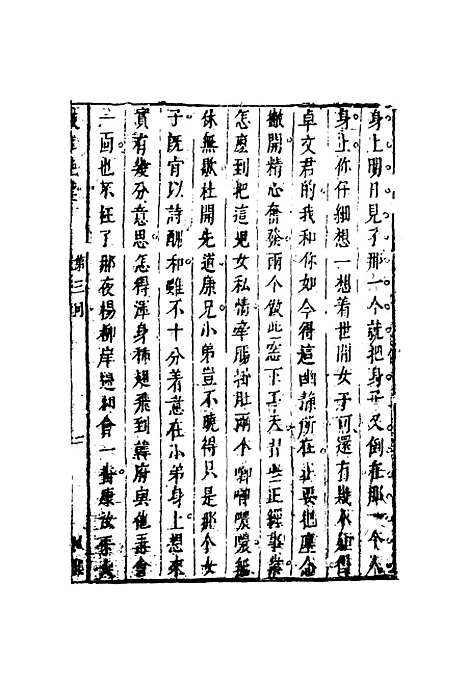 身上明日見了那一个就把身子又倒在那一个人
身上你仔細想一想着世間女子可還有幾个
卓文君的我和你如今得這幽靜所在正要把塵念
撇開精心奮發兩个做此窓下工夫正經事
怎麼到把這兒女私情牽腸掛肚兩个唧唧噥噥
休無歇杜開先道康兄小弟豈不曉得只是那个女
子既肯以詩酬和雖不十分着意在小弟身上想來
實有幾分意思怎得渾身翅飛到韓府與他再會
一面也不枉了那夜楊柳岸邊相會一番康
第三回